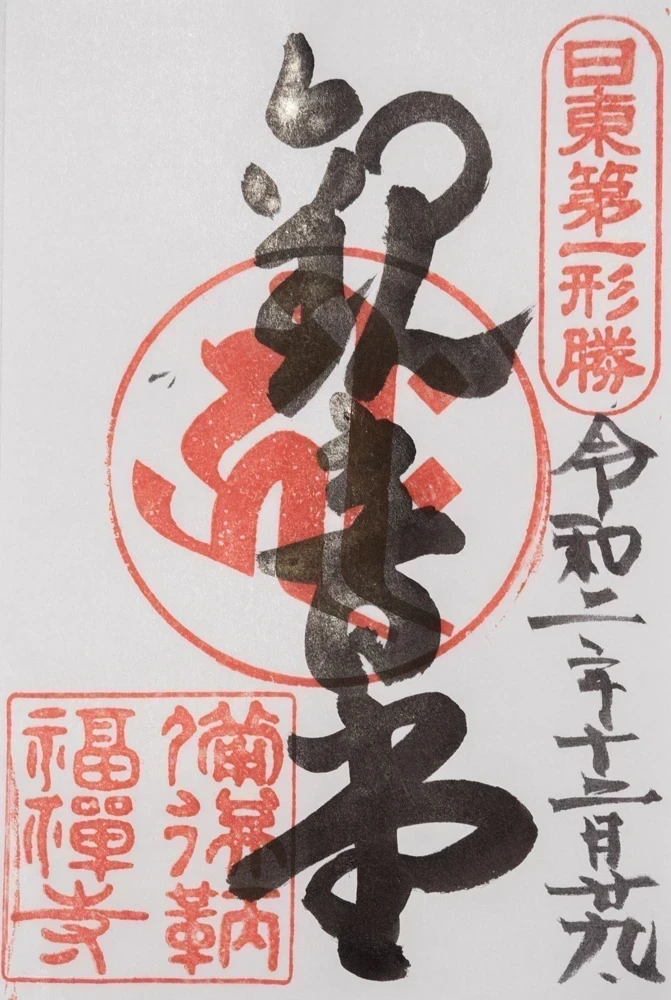 日東第一形勝
令和二年十二月廿九
観音堂
備後鞆
福禪寺